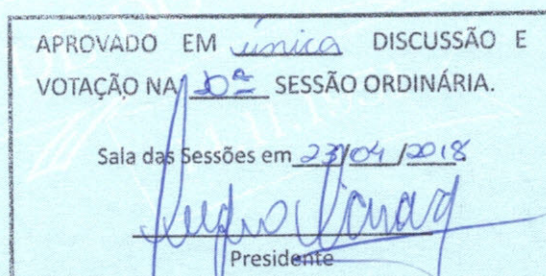 APROVADO EM única DISCUSSÃO E
VOTAÇÃO NA 10ª SESSÃO ORDINÁRIA.
Sala das Sessões em 23/04/2018
Presidente